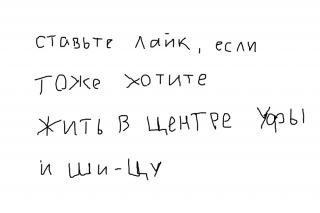 ставьте лайк, если
тоже хотите
жить в центре Уфы
и ши-цу